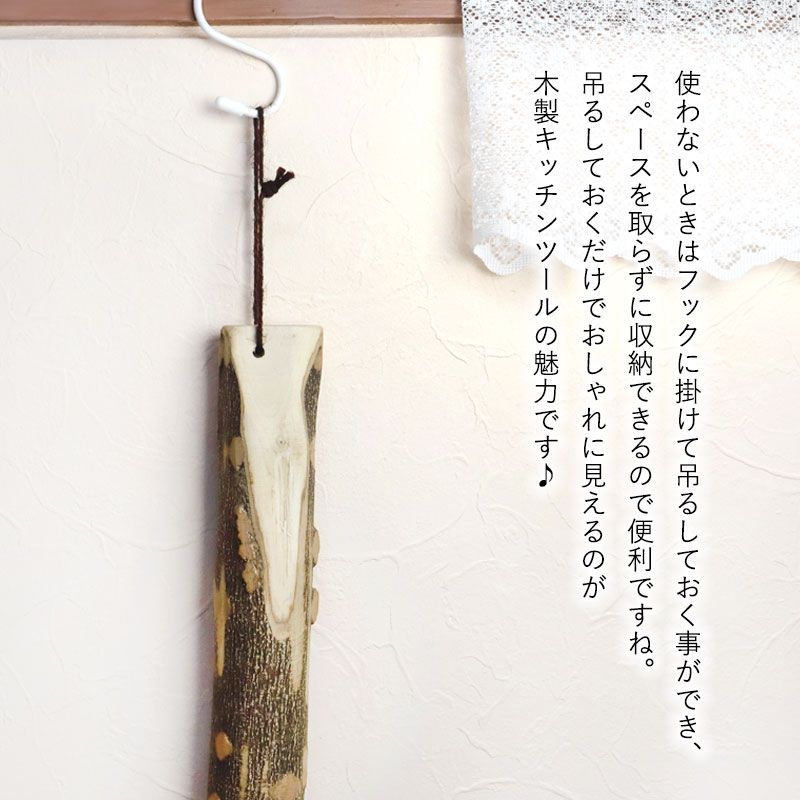 使わないときはフックに掛けて吊るしておく事ができ、
スペースを取らずに収納できるので便利ですね。
吊るしておくだけでおしゃれに見えるのが
木製キッチンツールの魅力です♪